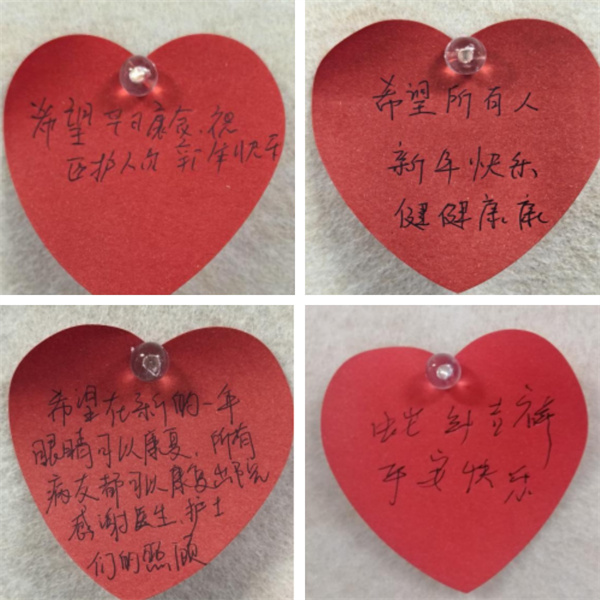 希望早日康复.祝
医护人员 新年快乐
希望所有人
新年快乐
健健康康
希望在新的一年
眼睛可以康复.所有
病友都可以康复出院
感谢医生.护士
们的照顾
蛇年吉祥
平安快乐